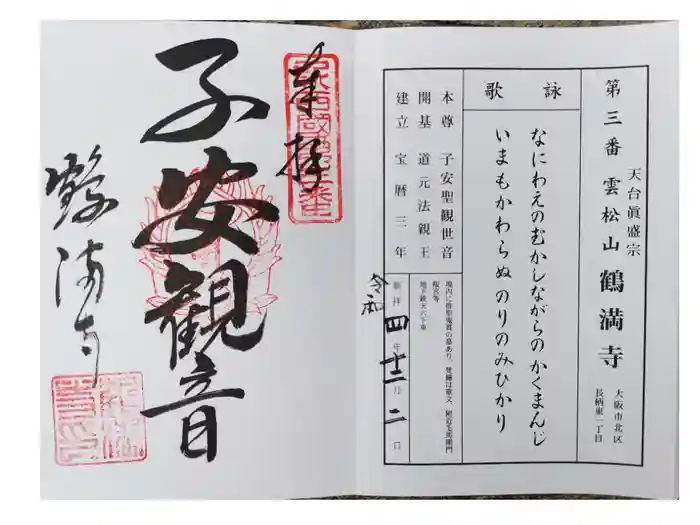 第三番 雲松山 鶴満寺
天台眞盛宗
大阪市北区
長柄東一丁目
詠歌
なにわえのむかしながらのかくまんじ
いまもかわらぬのりのみひかり
本尊 子安聖観世音
開基 道元法親王
建立 宝暦三年
地下鉄天六下車
令和四年十二月二日
奉拝
子安観音
鶴満寺